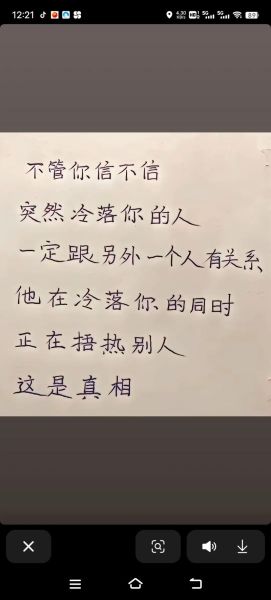 12:21
4.30
KB/s
HD
5G
5G
89
不管你信不信
突然冷落你的人
一定跟另外一个人有关系
他在冷落你的同时
正在捂热别人
这是真相